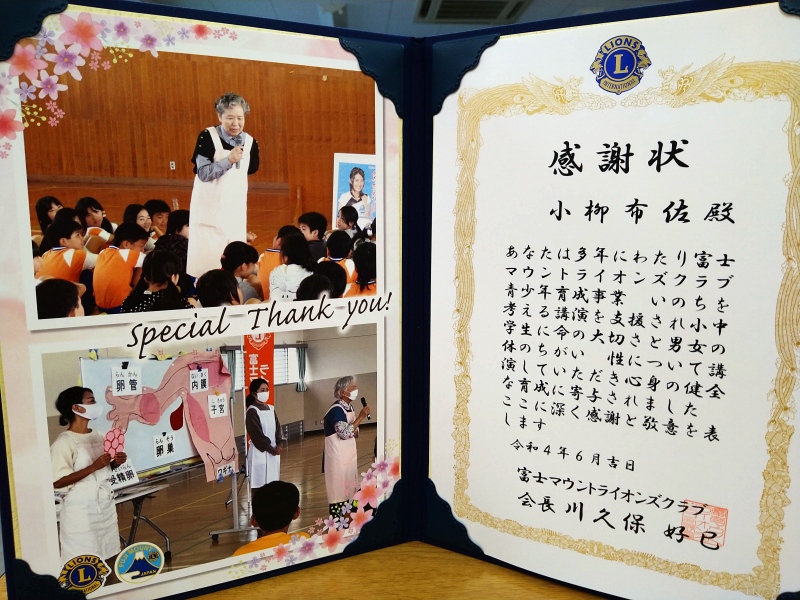 Special Thank you!
らんかん
卵管
ないまく
内膜
しきゅう
子宮
らんそう
卵巣
受精卵
ワギナ
LIONS
L
JAPAN
LIONS
L
INTERNATIONAL
感謝状
小柳布佐殿
あなたは多年にわたり富士
マウントライオンズクラブ
青少年育成事業 いのちを
考える講演を支援され小中
学生に命の大切さと男女の
体のちがい 性について講
演していただき心身の健全
な育成に寄与されました
ここに深く感謝と敬意を表
します
令和4年6月吉日
富士マウントライオンズクラブ
会長 川久保 好巳